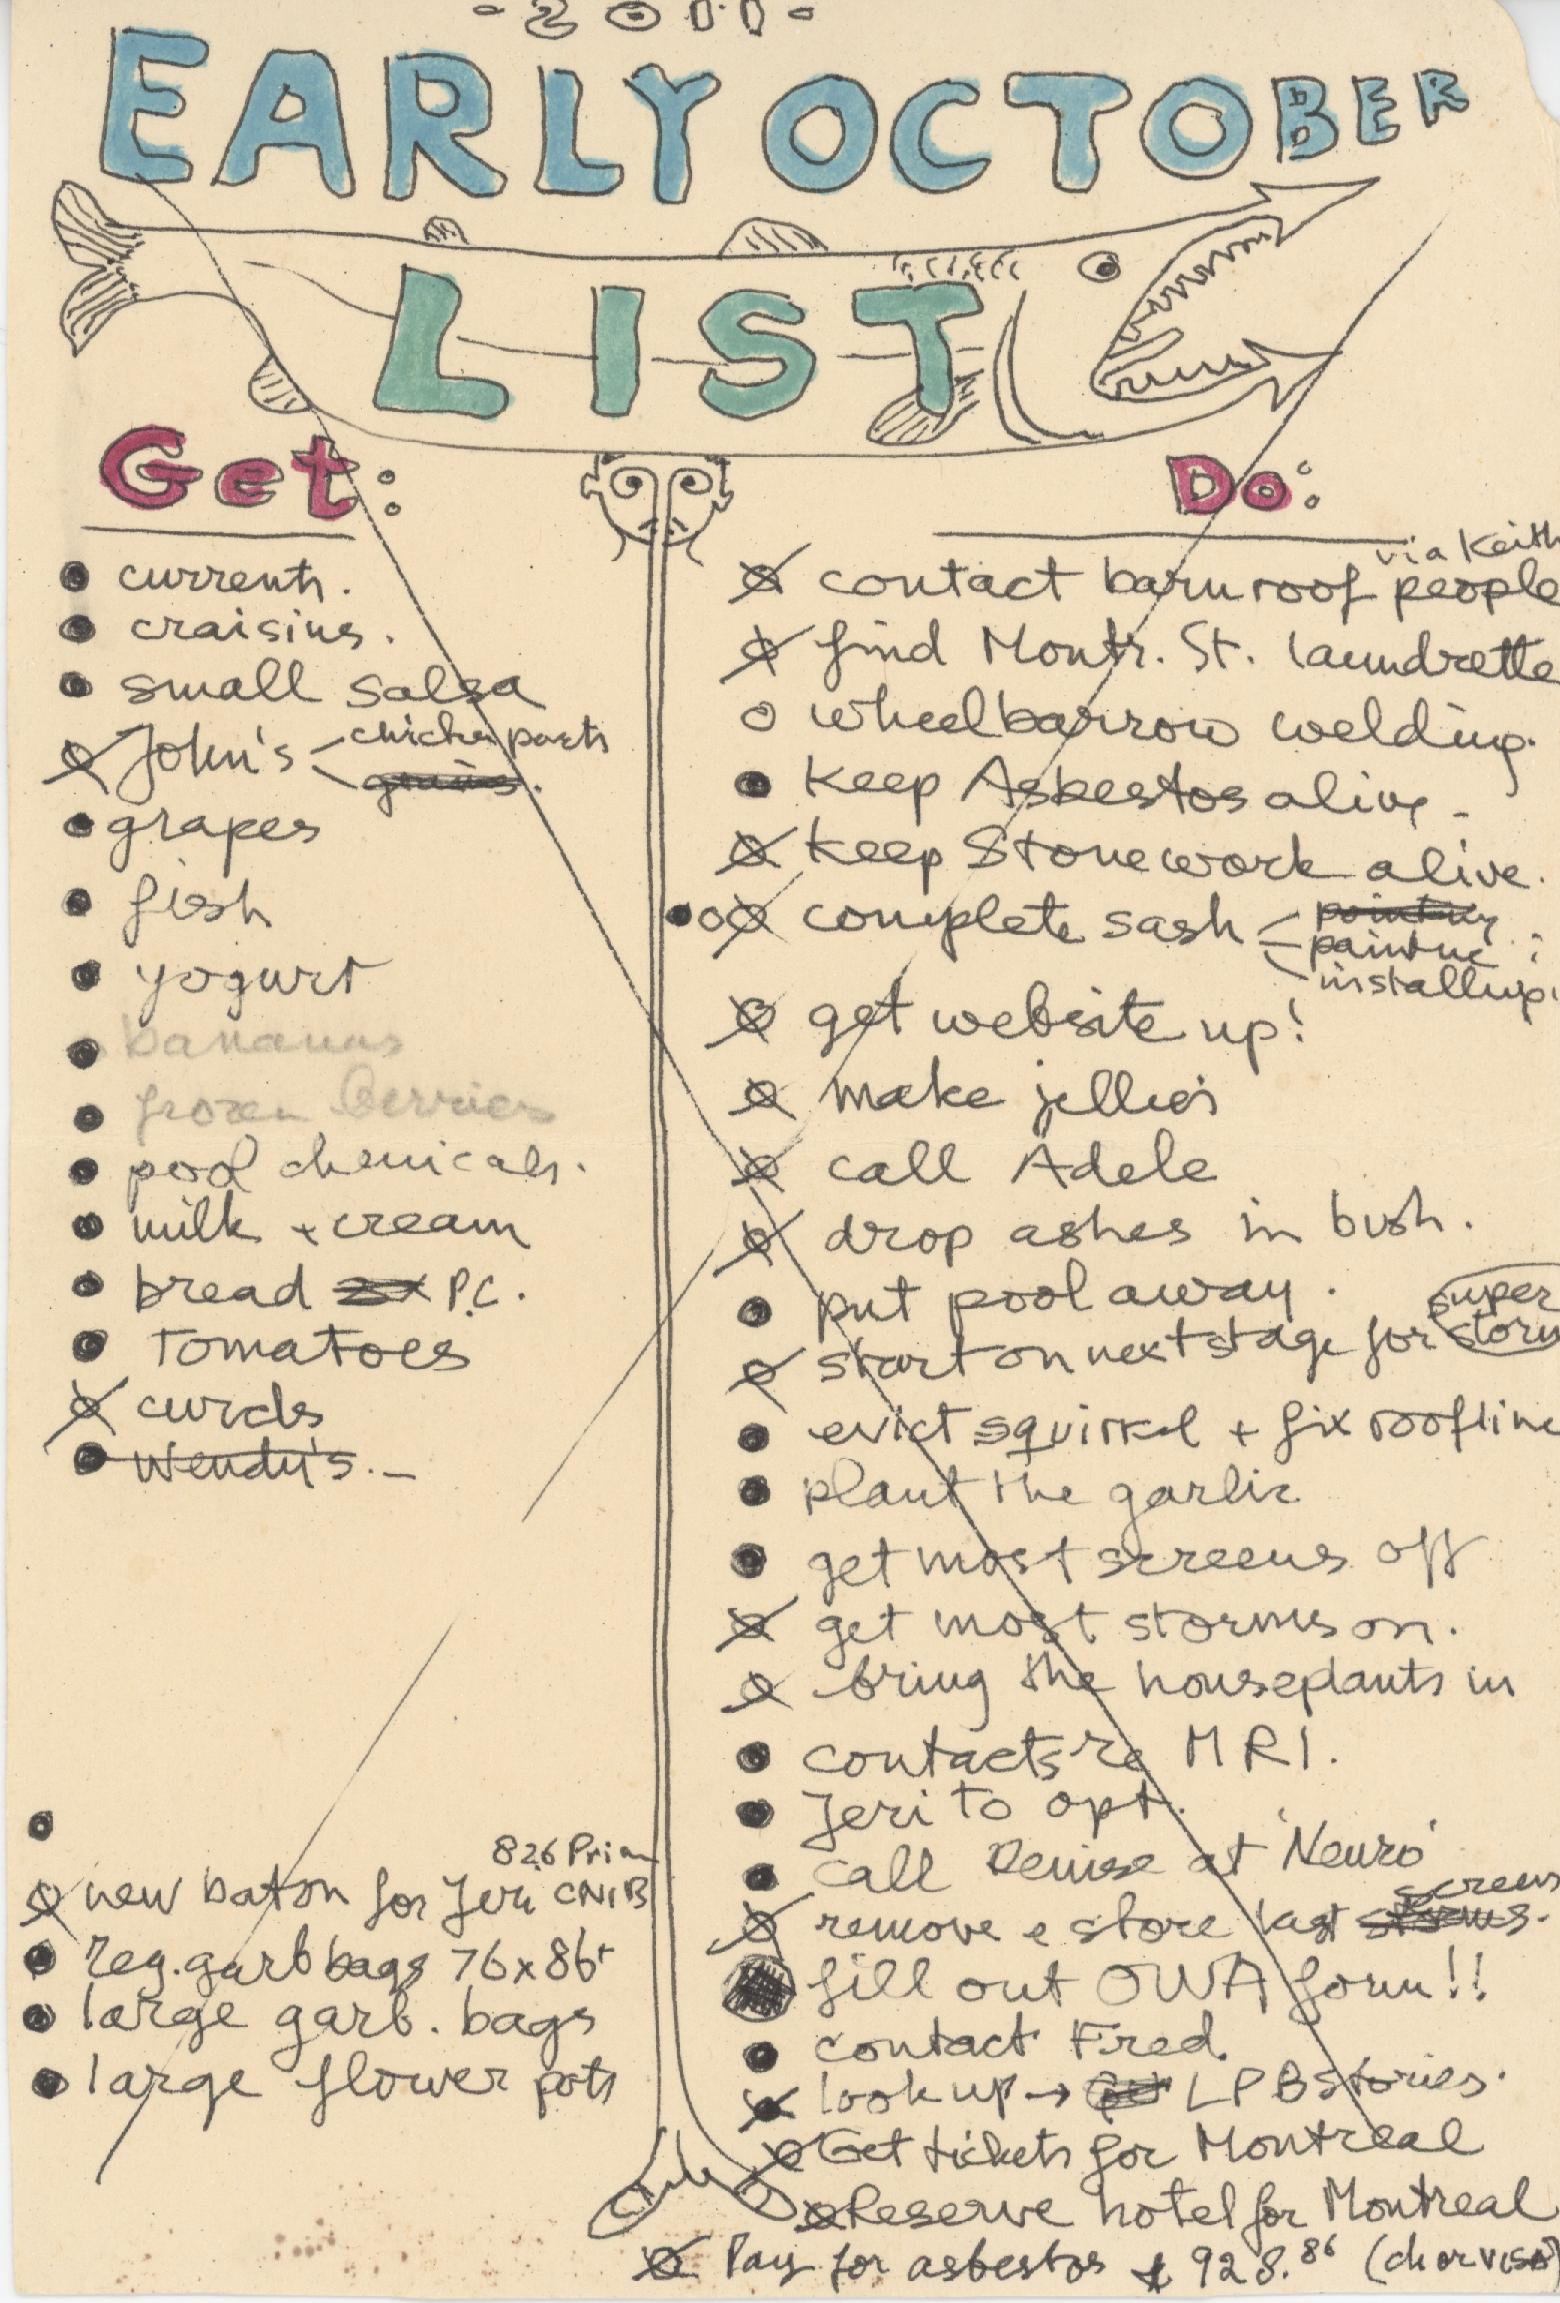 -2011-
EARLY OCTOBER
LIST
Get:
currents.
craisins.
small salsa
John's chicken parts
grains.
grapes
fish
yogurt
bananas
frozen berries
pool chemicals.
milk + cream
bread P.C.
Tomatoes
curds
Wendy's.
826 Prin
new baton for Jeri CNIB
reg. garb bags 76x86+
large garb. bags
large flower pots
Do:
via Keith
contact barn roof people
find Montr. St. laundrette
wheelbarrow welding.
keep Asbestos alive
keep Stonework alive.
complete sash
installing
get website up!
make jellies
call Adele
drop ashes in bush.
put pool away.
start on next stage for super
story
evict squirrel + fix roofline
plant the garlic
get most screens off
get most storms on.
bring the houseplants in
contacts re MRI.
Jeri to opt.
call Denise at 'Neuro'
screens
remove e store last storms.
fill out OWA form!!
contact Fred.
look up → LPB stories.
Get tickets for Montreal
Reserve hotel for Montreal
Pay for asbestos $ 928.86 (ch or visa)